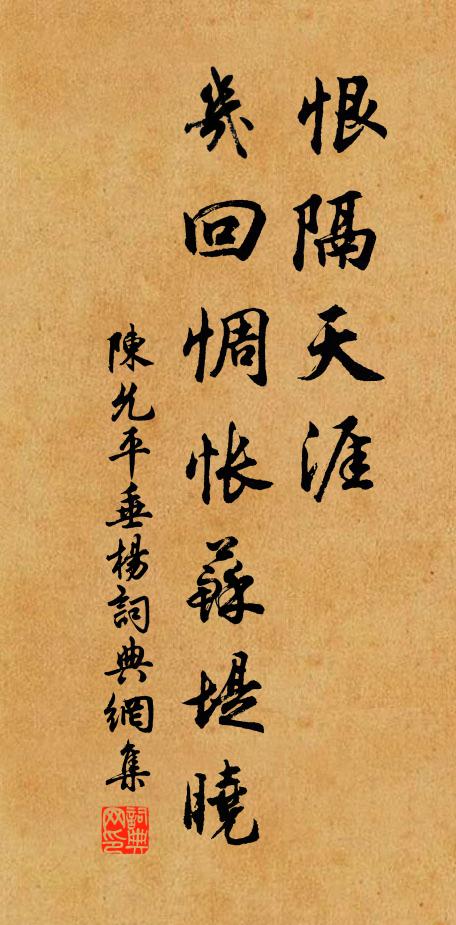 恨隔天涯
幾回惆怅蘇堤曉
陳允平垂楊詞典網集
詞典网印